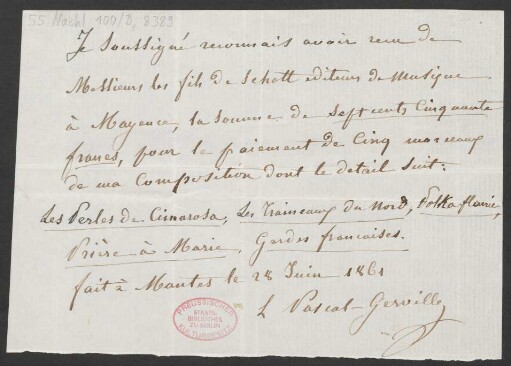 55 Nachl 100/D, 8389
Je soussigné reconnais avoir reçu de
Messieurs les fils de Schott editeurs de Musique
à Mayence, la somme de sept cents cinquante
francs, pour le paiement de cinq morceaux
de ma composition dont le détail suit:
Les Perles de Cimarosa, Les Traineaux du Nord, Polka
Prière à Marie, Gardes françaises.
fait à Mantes le 28 Juin 1861
L Pascal-Gerville
PREUSSISCHER
STAATS-
BIBLIOTHEK
ZU BERLIN
KULTURBESITZ